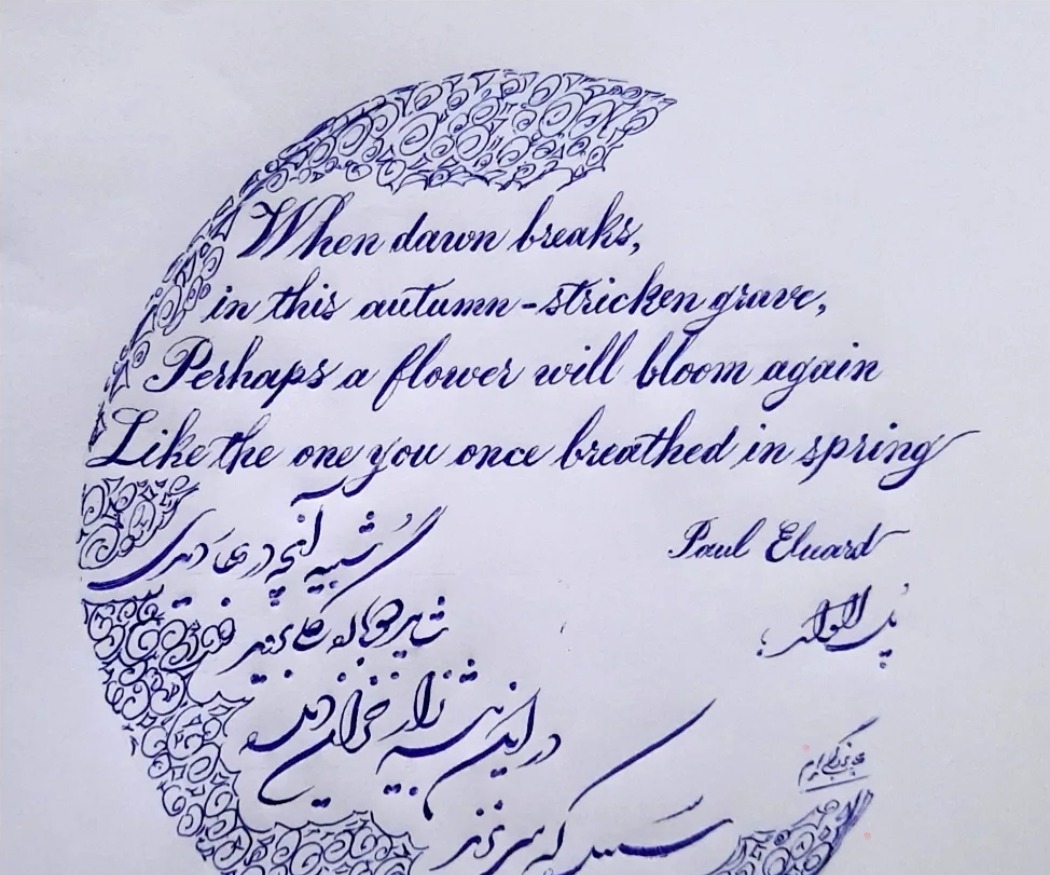 When dawn breaks,
in this autumn-stricken grave,
Perhaps a flower will bloom again
Like the one you once breathed in spring
Paul Eluard
شبیه آنچه در
پل الوار
شاید دوباره گلی بروید
در این بیشه زار خزان زده
سپیده که سر بزند